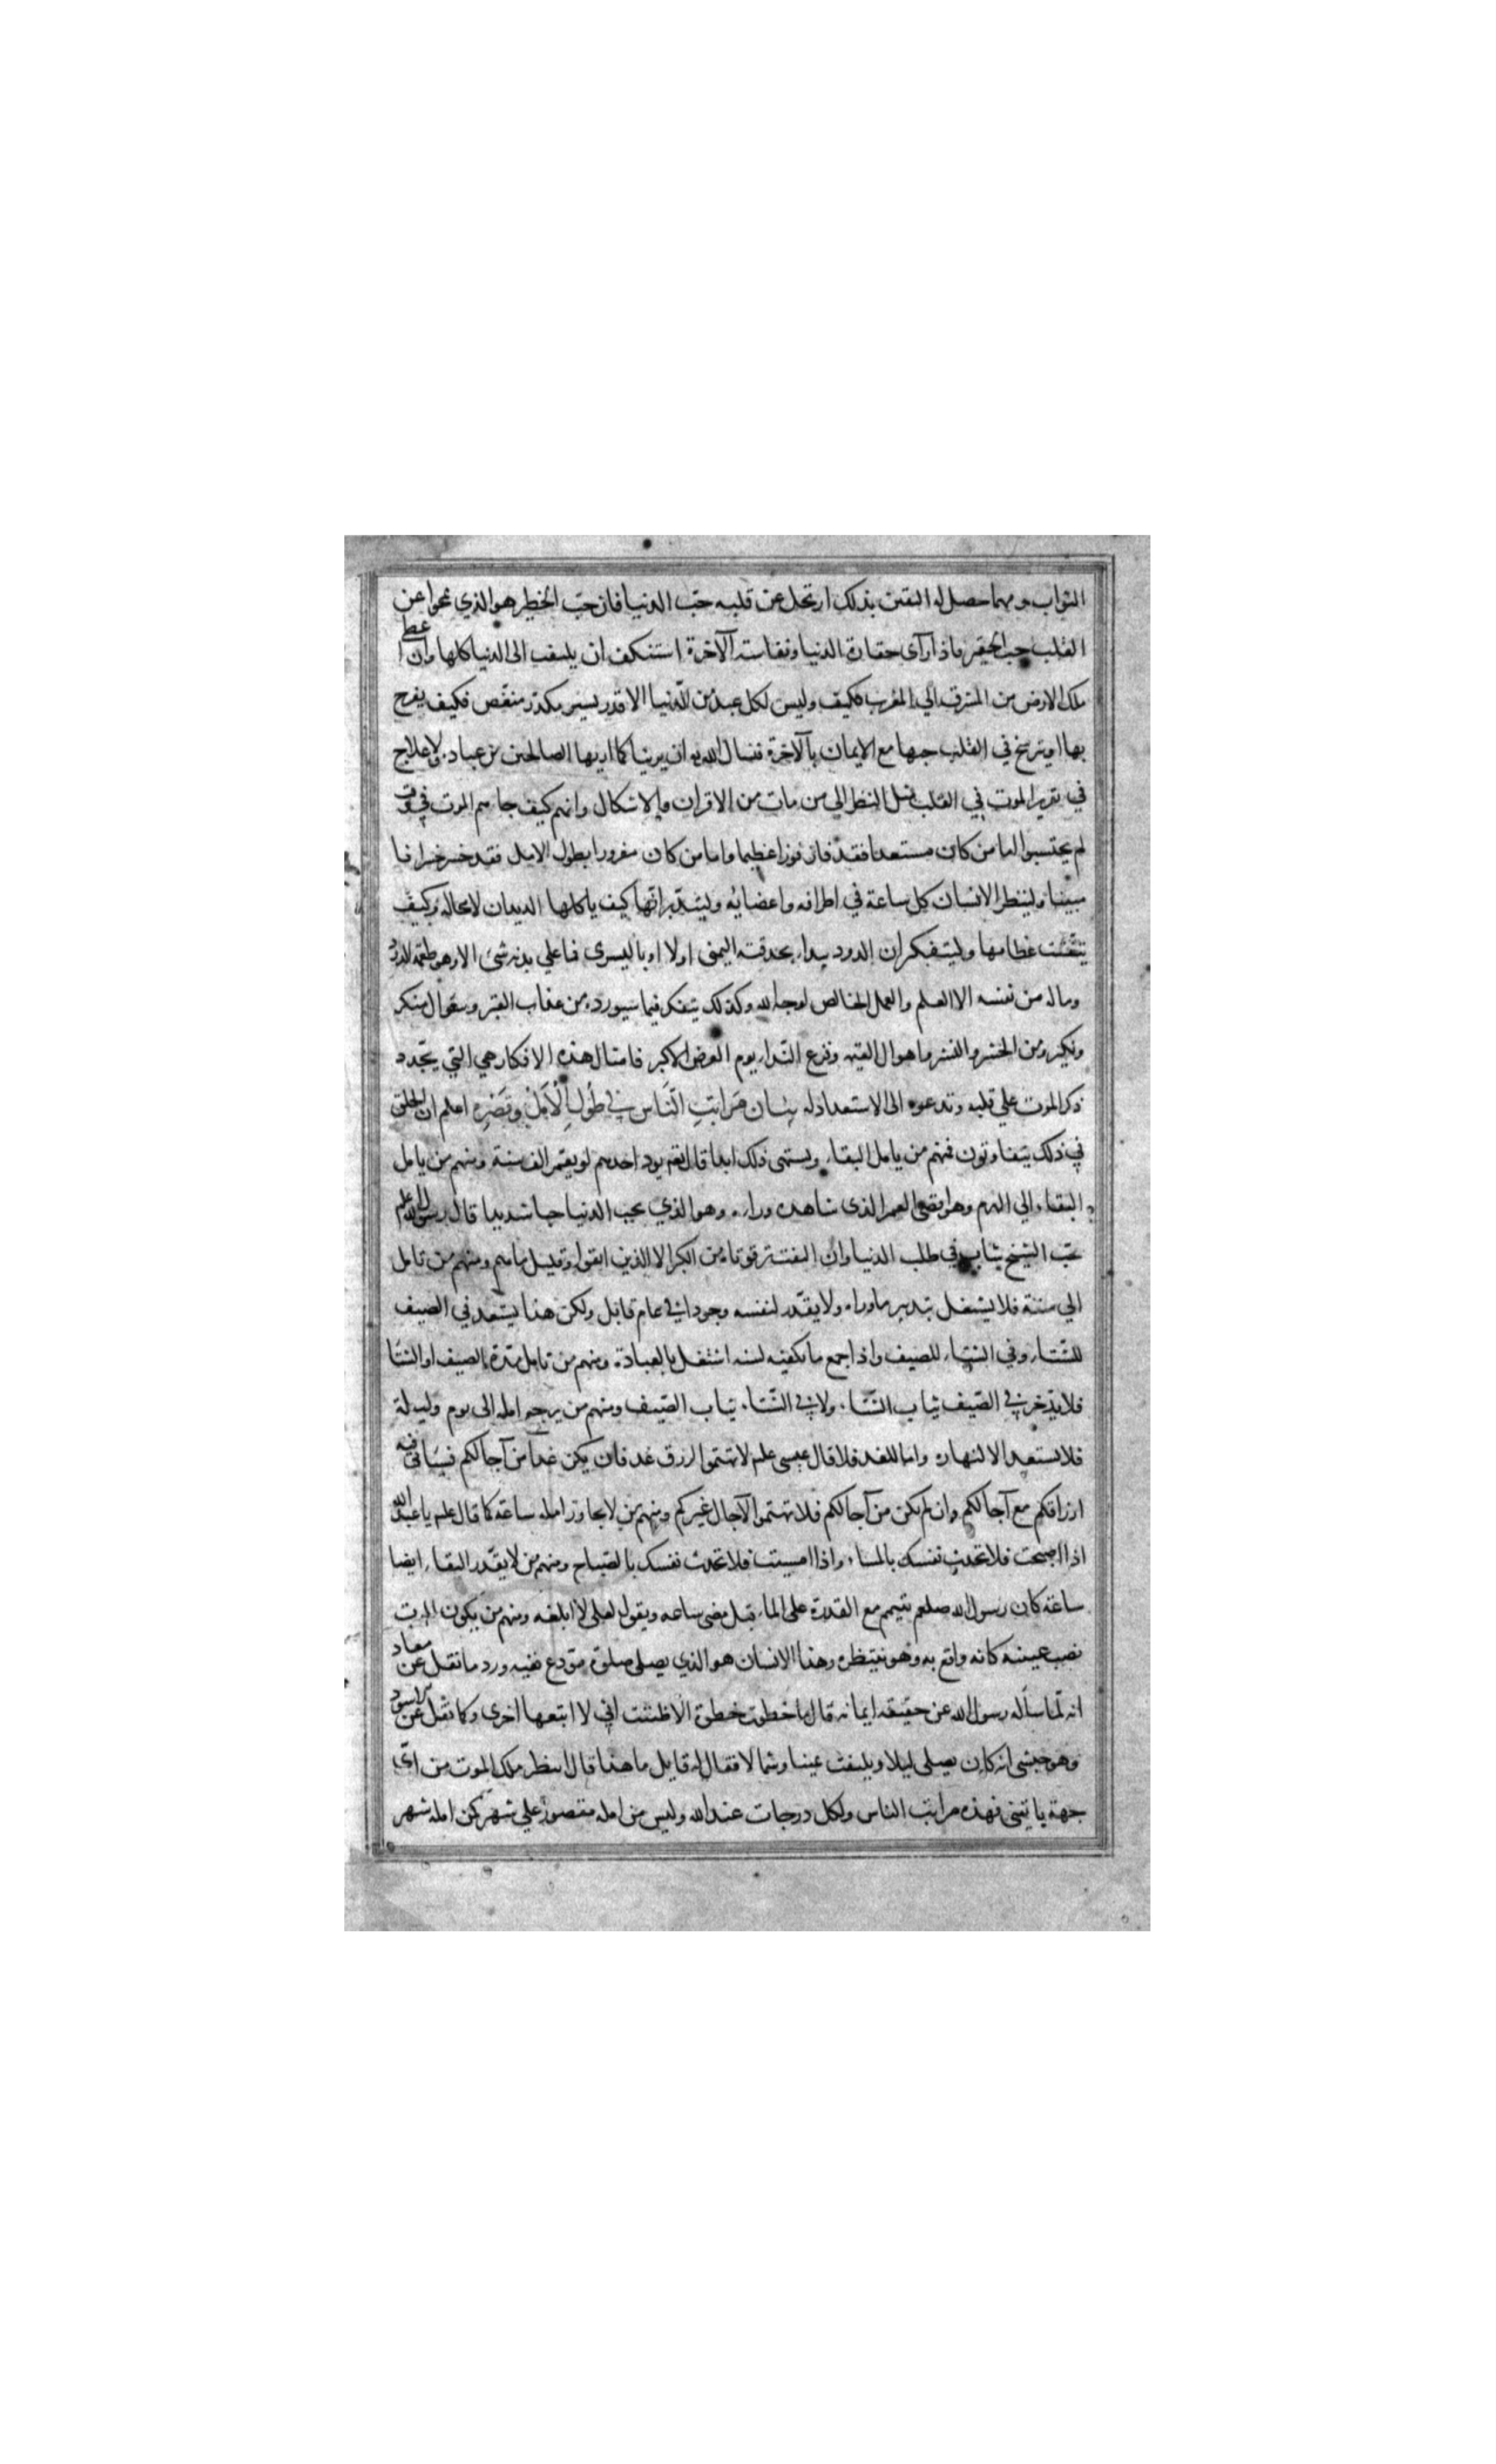 الثواب ومهما حصل له اليقين بذلك ارتحل عن قلبه حبّ الدنيا فان حبّ الخطير هو الذي يمحوا عن
القلب حب الحقير فاذا رآى حقارة الدنيا ونفاسته الآخرة استنكف ان يلتفت الى الدنيا كلها وان اعطى
ملك الارض من المشرق الي المغرب فكيف وليس لكل عبد من الدنيا الا قدر يسير مكدّر منغّص فكيف يفرح
بها او يترسخ في القلب حبها مع الايمان بالآخرة فنسال الله ان يرينا كما اريها الصالحين من عباده ولا علاج
في تقرير الموت في القلب مثل النظر الي من مات من الاقران والاشكال وانهم كيف جاءهم الموت في وقت
لم يحتسبوا اما من كان مستعدا فقد فاز فوزا عظيما واما من كان مغرورا بطول الامل فقد خسر خسرانا
مبينا ولينظر الانسان كل ساعة في اطرافه واعضائه وليتدبر انّها كيف ياكلها الديدان لا محالة وكيف
يتفتّت عظامها وليتفكر ان الدود يبداء بحدقته اليمنى اولا او باليسرى فما علي بدنه شئ الا وهو طعمة الدود
وماله من نفسه الا العلم والعمل الخالص لوجه الله وكذلك يتفكر فيما سيورده من عذاب القبر وسؤال منكر
ونكير ومن الحشر والنشر واهوال القيمة وفزع النداء يوم العرض الاكبر فامثال هذه الافكار هي التي يجّدد
ذكر الموت علي قلبه وتدعوه الى الاستعداد له بيَان مَرَاتبِ النَّاس في طُولِ الْأَمَلْ وقَصْرِهِ اعلم ان الخلق
في ذلك يتفاوتون فمنهم من يامل البقاء ويشتهى ذلك ابدا قال تعالى يود احدهم لو يعمر الف سنة ومنهم من يامل
البقاء الي الهرم وهو اقصى العمر الذى شاهده وراه وهو الذي يحب الدنيا حبا شديدا قال رسول الله علم
حبّ الشيخ شاب في طلب الدنيا وان التفت ترقوتاه من الكبر الا الذين اتقوا وقليل ما هم ومنهم من تامل
الي سنة فلا يشتغل بتدبير ما وراه ولا يقدّر لنفسه وجودا في عام قابل ولكن هذا يستعد في الصيف
للشتاء وفي الشتاء للصيف واذا جمع ما يكفيه لسنه اشتغل بالعبادة ومنهم من تامل مدة الصيف او الشتا
فلا يدّخر في الصّيف ثياب الشّتاء ولا في الشّتاء ثياب الصّيف ومنهم من يرجع امله الى يوم وليلة
فلا يستعد الا لنهاره واما للغد فلا قال عيسى علم لا تهتموا لرزق غد فان يكن غدا من آجالكم فسياتى فيه
ارزاقكم مع آجالكم وان لم يكن من آجالكم فلا تهتموا لآجال غيركم ومنهم من لا يجاوز امله ساعة كما قال علم يا عبد الله
اذا اصبحت فلا تحدث نفسك بالمساء واذا امسيت فلا تحدث نفسك بالصّباح ومنهم من لا يقدّر البقاء ايضا
ساعة كان رسول الله صلعم تتيمم مع القدرة على الماء قبل مضى ساعه ويقول لعلى لا ابلغه ومنهم من يكون الموت
نصب عينيه كانه واقع به وهو ينتظره وهذا الانسان هو الذي يصلى صلوة مودع ففيه ورد ما نقل عن معاد
انه لمّا ساله رسول الله عن حقيقة ايمانه قال ما خطوت خطوة الا ظننت انى لا اتبعها اخرى وكما نقل عن الاسود
وهو حبشى انه كان يصلى ليلا ويلتفت يمينا وشمالا فقال له قايل ما هذا قال انتظر ملك الموت من اىّ
جهة ياتينى فهذه مراتب الناس ولكل درجات عند الله وليس من امله مقصور علي شهر كمن امله شهر